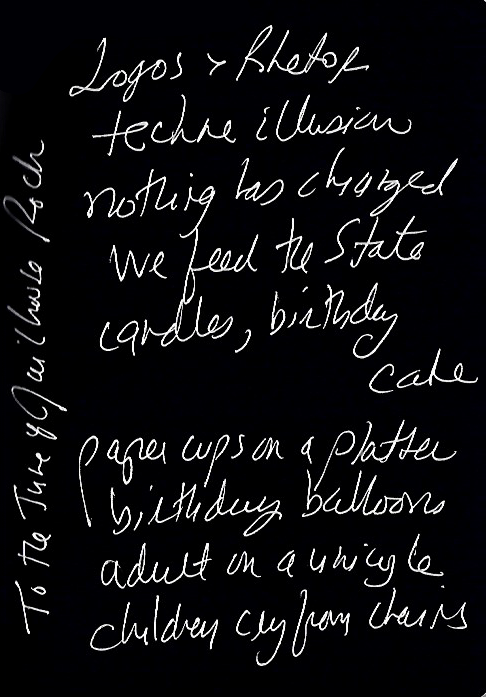 Logos > Rhetor
techne illusion
nothing has changed
We feed the State
candles, birthday
cake
paper cups on a platter
birthday balloons
adult on a unicycle
children cry from chairs
To the Tune of Jailhouse Rock